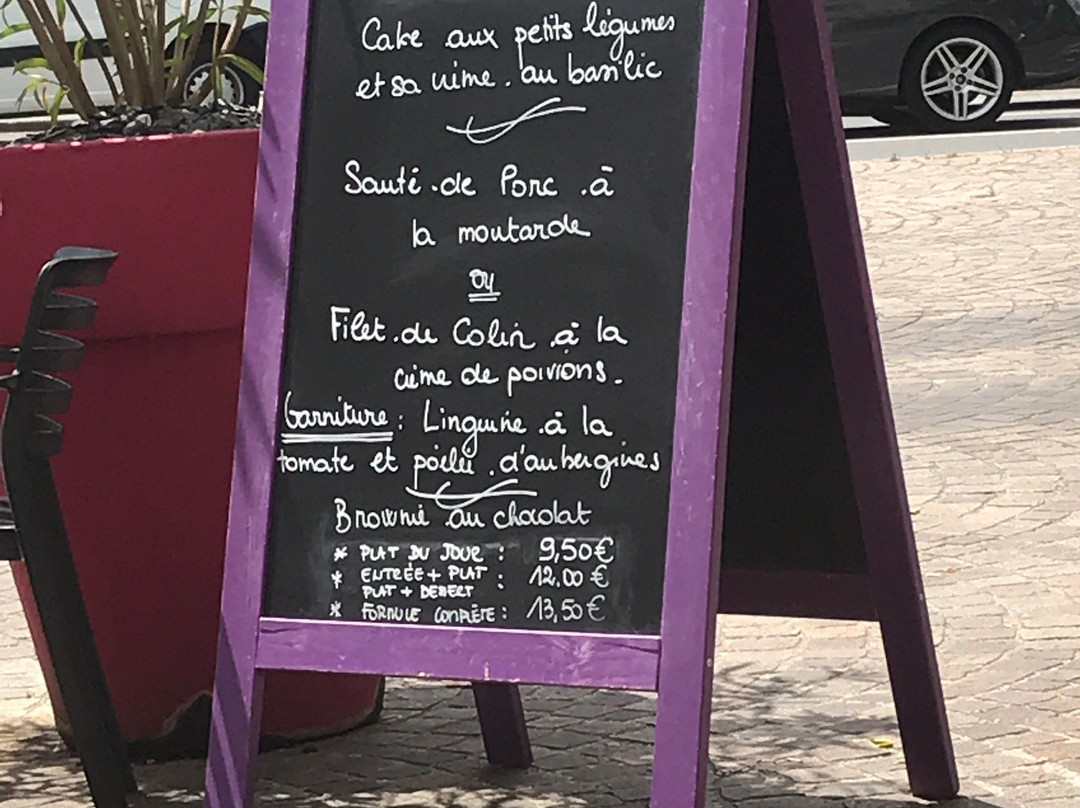 Cake aux petits légumes
et sa crème au basilic
Sauté de Porc à
la moutarde
ou
Filet de Colin à la
crème de poivrons.
Garniture : Linguine à la
tomate et poêlée d'aubergines
Brownie au chocolat
* PLAT DU JOUR : 9,50€
* ENTRÉE + PLAT : 12,00 €
PLAT + DESSERT
* FORMULE COMPLÈTE : 13,50€